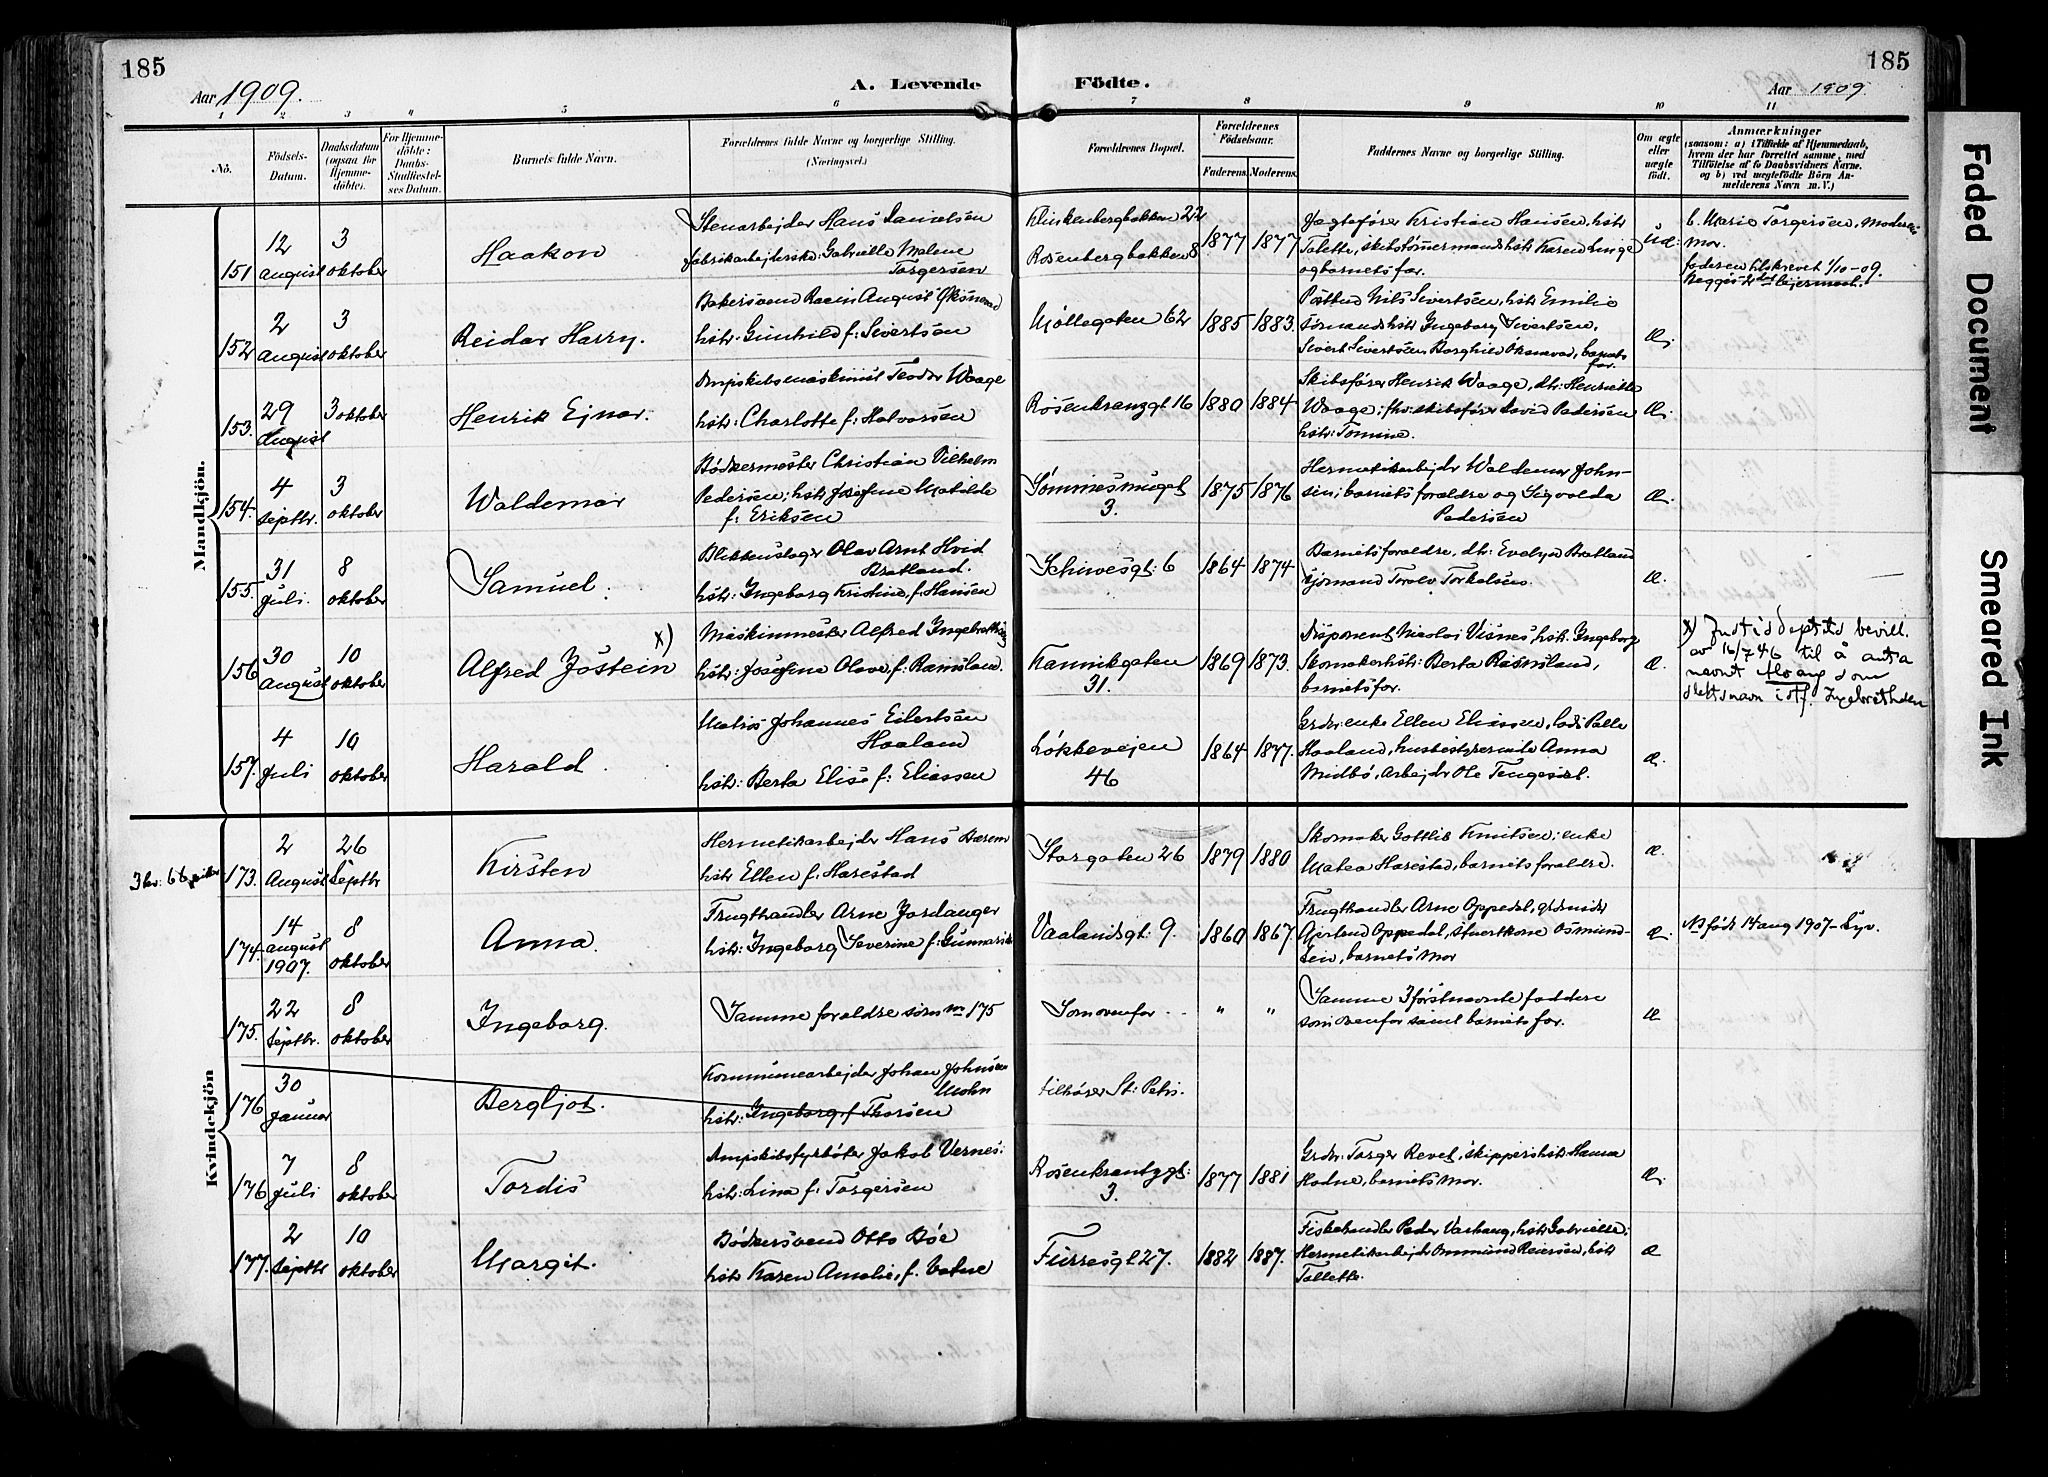 185
185
Aar 1909.
A. Levende
Födte.
Aar 1909
1 2 3 4 5 6 7 8 9 10 11
No.
Födsels-Datum.
Daabsdatum (ogsaa for Hjemmedöbte).
For Hjemmedöbte: Daabs-Stadfæstelses Datum.
Barnets fulde Navn.
Forældrenes fulde Navne og borgerlige Stilling. (Næringsvei.)
Forældrenes Bopæl.
Forældrenes Födselsaar.
Faderens. Moderens.
Faddernes Navne og borgerlige Stilling.
Om ægte eller uægte födt.
Anmærkninger
(saasom: a) i Tilfælde af Hjemmedaab, hvem der har forrettet samme, med Tilföielse af to Daabsvidners Navne, og b) ved uægtefödte Börn Anmelderens Navn m. V.)
Mandkjön.
151
12 august
3 oktober
Haakon
Stenarbejder Hans Danielsen
fabrikarbejderske: Gabrielle Malene
Torgersen
Klinkenbergbakken 22
Rosenbergbakken 8
1877 1877
Jagtefører Kristian Hansen, hstr
Talette, skibstømermands hstr Karen Linge
og barnets far.
Uæ:
b. Marie Torgersen, Moderens
Mor.
faderen tilskrevet 1/10-09.
Begges 2det lejermaal.
152
2 august
3 oktober
Reidar Harry.
Bakersvend Rasin August Øksnevad
hstr: Gunhild f: Sivertsen
Møllegaten 62
1885 1883.
Postbud Nils Sivertsen, hstr Emilie
Sivertsen,
Sivert Sivertsen, Borghild Øksnevad, barnets
far.
Æ.
153.
29 August
3 oktober
Henrik Ejnar.
Dmpskibsmaskinist Teodor Waage
hstr: Charlotte f: Halvorsen
Rosenkranzgt 16
1880 1884
Skibsfører Henrik Waage, dtr: Henriette
Waage; fhv: skibsfører David Pedersen
hstr: Tomine.
Æ.
154.
4 septbr.
3 oktober
Waldemar
Bødkermester Christian Vilhelm
Pedersen; hstr Josefine Matilde
f: Eriksen
Sømmesmuget
3.
1875 1876
Hermetikarbejdr Waldemar John-
sen; barnets forældre og Sigvolda
Pedersen
Æ.
155.
31 Juli.
8 oktober
Samuel.
Blikkenslager Olav Arnt Hvid
Bratland.
hstr: Ingeborg Kristine, f: Hansen
Schiwesgt: 6
1864 1874
Barnets forældre, dtr: Evelyn Bratland
Torolv Torkelsen.
Æ.
156
30 August
10 oktober
Alfred Jostein x)
Maskinmester Alfred Ingebretsen
hstr: Josefine Olave f: Ramsland.
Kannikgaten
31.
1869 1873.
Disponent Nicolai Visnes, hstr. Ingeborg
Skomakerhstr: Berta Ramsland,
barnets far.
Æ.
x) Justisdeptets bevill.
av 16/7 46 til å anta
navnet Hoang som
slektsnavn istf. Ingebrethsen
157.
4 Juli
10 oktober
Harald.
Matros Johannes Eilertsen
Haaland
hstr: Berta Elise f: Eliassen
Løkkevejen
46
1864 1877.
Grdr: enke Ellen Eliassen, Palle
Haaland, husbestyrerinde Anna
Midbø, Arbejdr Ole Tengesdal.
Æ.
Kvindekjön
173.
2 August
26 Septbr
Kirsten
Hermetikarbejder Hans Bærem
hstr Ellen f: Harestad
Storgaten 26
1879 1880
Skomaker Gottlib Knutsen; enke
Matea Harestad, barnets forældre.
Æ.
174.
14 august 1907.
8 oktober
Anna.
Frugthandler Arne Jordanger
hstr: Ingeborg Severine f: Gunnarsdtr
Vaalandsgt: 9.
1860 1867.
Frugthandler Arne Oppedal, grdmands
Gjertrud Oppedal, stuertkone Osmund-
sen, barnets Mor
Æ.
NB født 14 aug 1907 - Syv.
175.
22 septbr.
8 oktober
Ingeborg.
Samme forældre som no 175
Somovenfor
" "
Samme 3 førstnævnte faddere
som ovenfor samt barnets far.
Æ
176
30 Januar
Bergljot.
Kommunearbejder Johan Johnsen
Mohn
hstr: Ingeborg f Thorsen
tilhører St: Petri.
176
7 Juli
8 oktober
Tordis
Dmpskibsfyrbøter Jakob Vernes:
hstr: Lina f: Torgersen
Rosenkrantzgt:
3.
1877 1881
Grdr: Torger Revet, skippers hstr: Hanna
Hodne, barnets mor.
Æ.
177.
2 septbr
10 oktober
Margit.
Bødkersvend Otto Bøe
hstr Karen Amalie, f. Vatne
Furresgt 27.
1882 1887.
Fiskehandler Peder Varhaug, hstr Gabrielle;
Hermetikarbejdr Ommund Reiersen, hstr
Tallette.
Æ
Faded Document
Smeared Ink